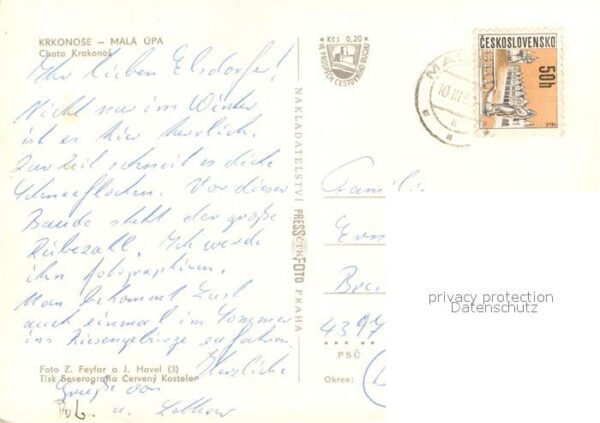 KRKONOŠE — MALÁ ÚPA
Chata Krakonoš
Ihr lieben Elsdorfer!
Nicht nur im Winter
ist es hier herrlich.
Zur Zeit schneit es dicke
Schneeflocken. Vor dieser
Baude steht der große
Rübezahl. Ich werde
ihn fotographieren.
Man bekommt Lust
auch einmal im Sommer
ins Riesengebirge zu fahren.
Herzliche
Grüße von
u.
Foto Z. Feyfar a J. Havel (3)
Tisk Severografia Červený Kostelec
NAKLADATELSTVÍ PRESSFOTO PRAHA
Kčs 0,20
VE PROSPĚCH CESTOVNÍHO RUCHU
MAL
10.III
ČESKOSLOVENSKO
50h
Familie
Ern
4397
PSČ
Okres:
privacy protection
Datenschutz